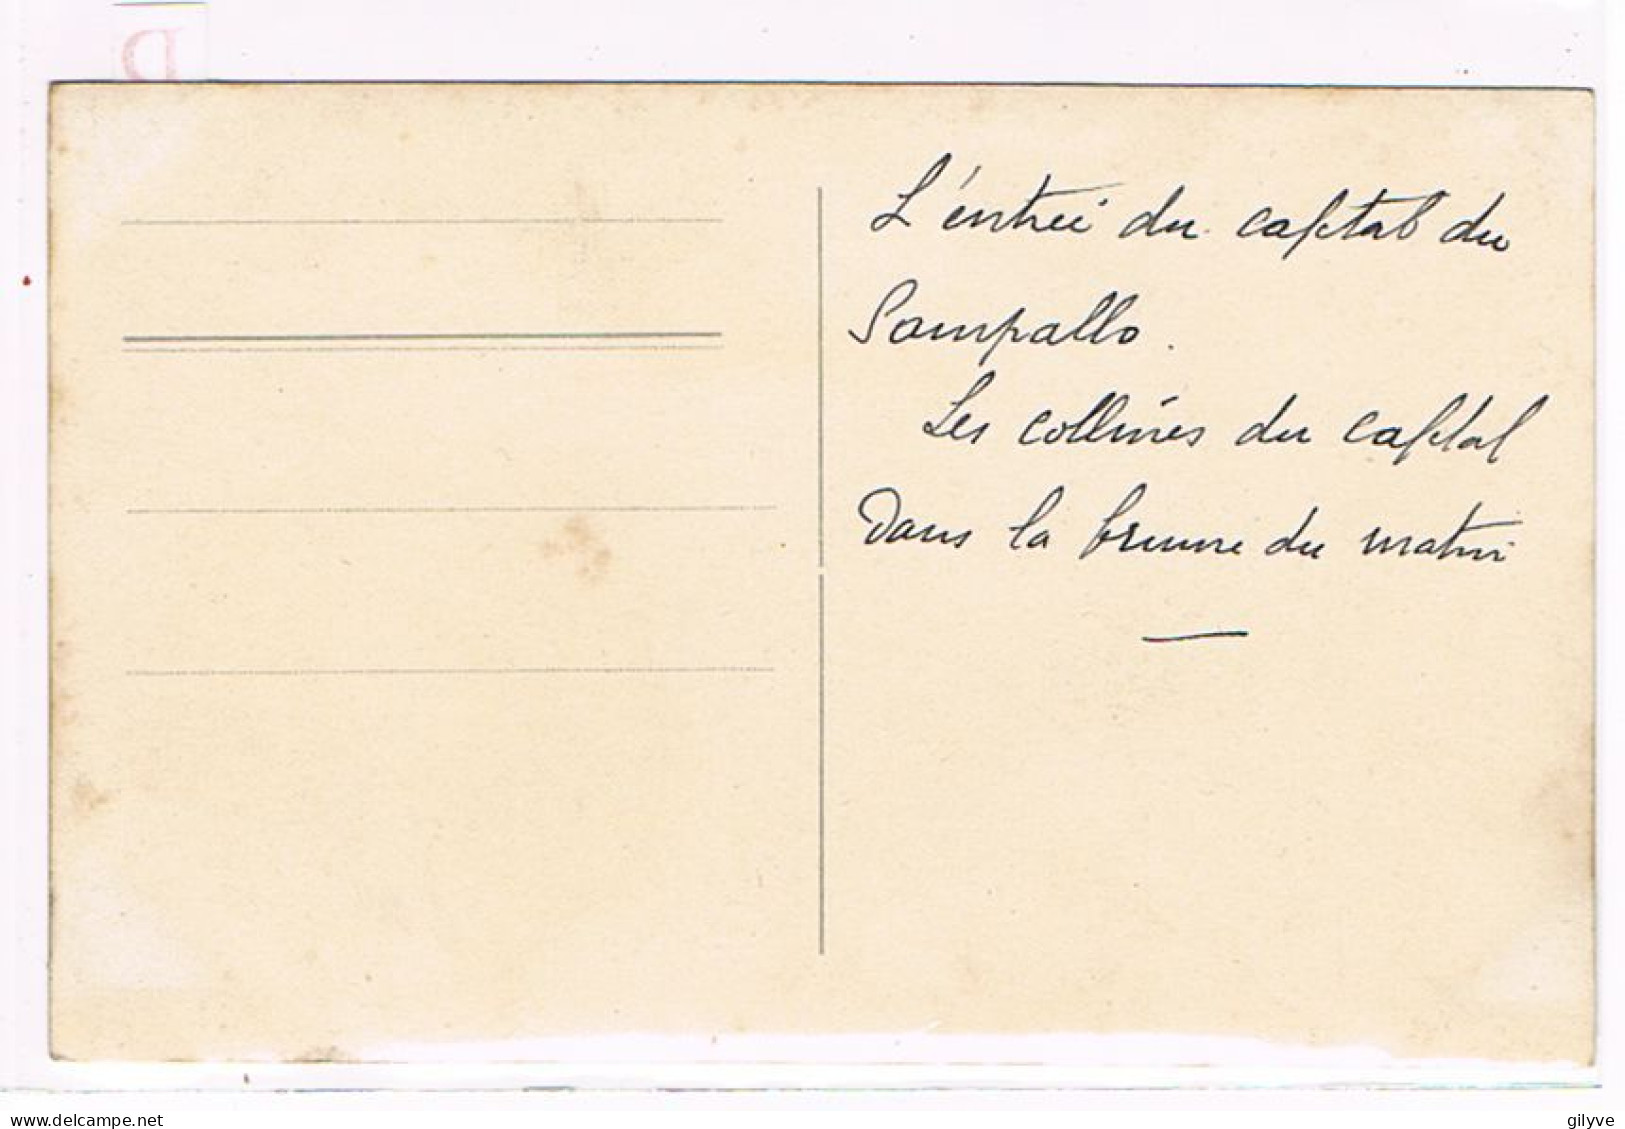 L'entrée du captal du
Sampallo.
Les collines du captal
Dans la brume du matin
www.delcampe.net
gilyve